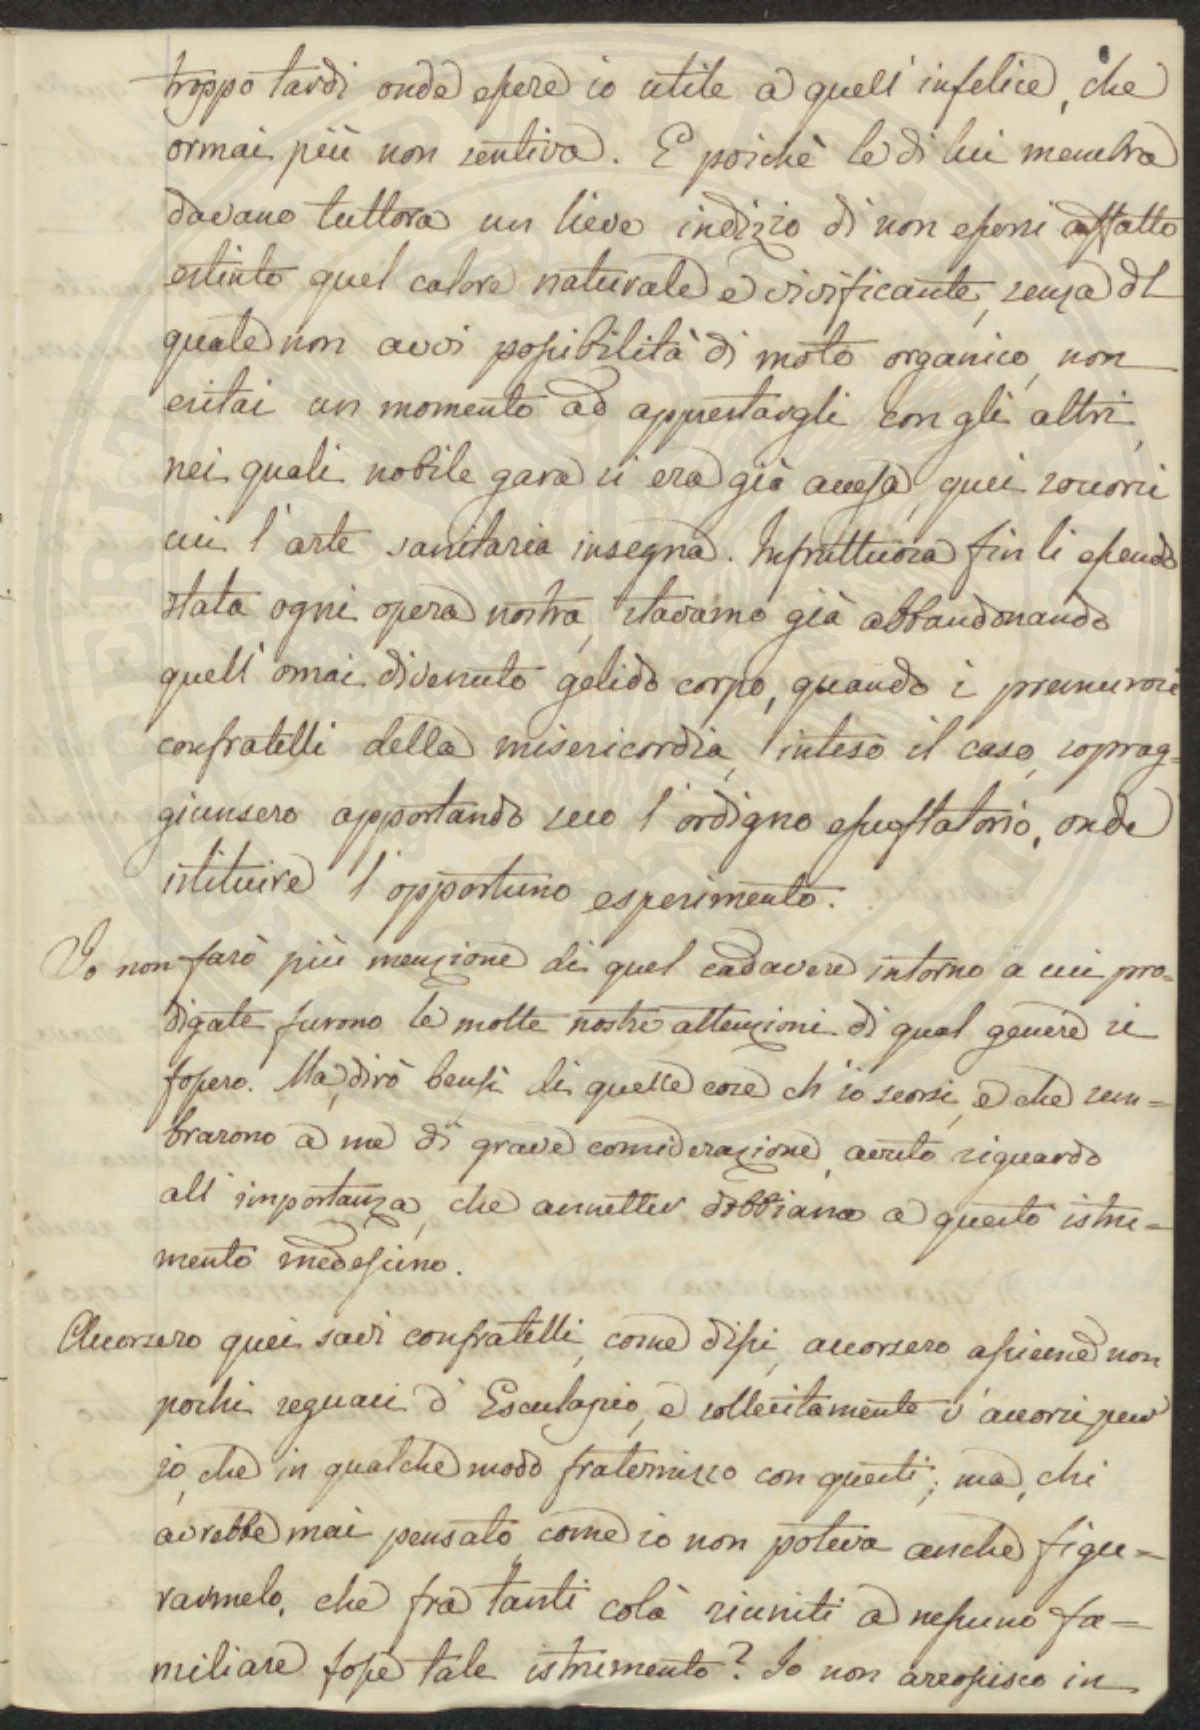 troppo tardi onde essere io utile a quell' infelice, che
ormai più non sentiva. E poichè le di lui membra
davano tuttora un lieve indizio di non essersi affatto
estinto quel calore naturale e vivificante, senza del
quale non avvi possibilità di moto organico, non
esitai un momento ad apprestargli con gli altri,
nei quali nobile gara si era già accesa, quei soccorsi
cui l' arte sanitaria insegna. Infruttuosa fin lì essendo
stata ogni opera nostra, stavamo già abbandonando
quell' omai divenuto gelido corpo, quando i premurosi
confratelli della misericordia, inteso il caso, soprag-
giunsero apportando seco l' ordigno insufflatorio, onde
istituire l' opportuno esperimento.
Io non farò più menzione di quel cadavere intorno a cui pro-
digate furono le molte nostre attenzioni di qual genere si
fossero. Ma, dirò bensì di quelle cose ch' io scorsi, e che sem-
brarono a me di grave considerazione, avuto riguardo
all' importanza, che annetter dobbiamo a questo istru-
mento medesimo.
Accorsero quei savi confratelli, come dissi, accorsero assieme non
pochi seguaci d' Esculapio, e sollecitamente v' accorsi pur
io, che in qualche modo fraternizzo con questi; ma, chi
avrebbe mai pensato, come io non poteva anche figu-
rarmelo, che fra tanti colà riuniti a nessuno fa-
miliare fosse tale istrumento? Io non arrossisco in